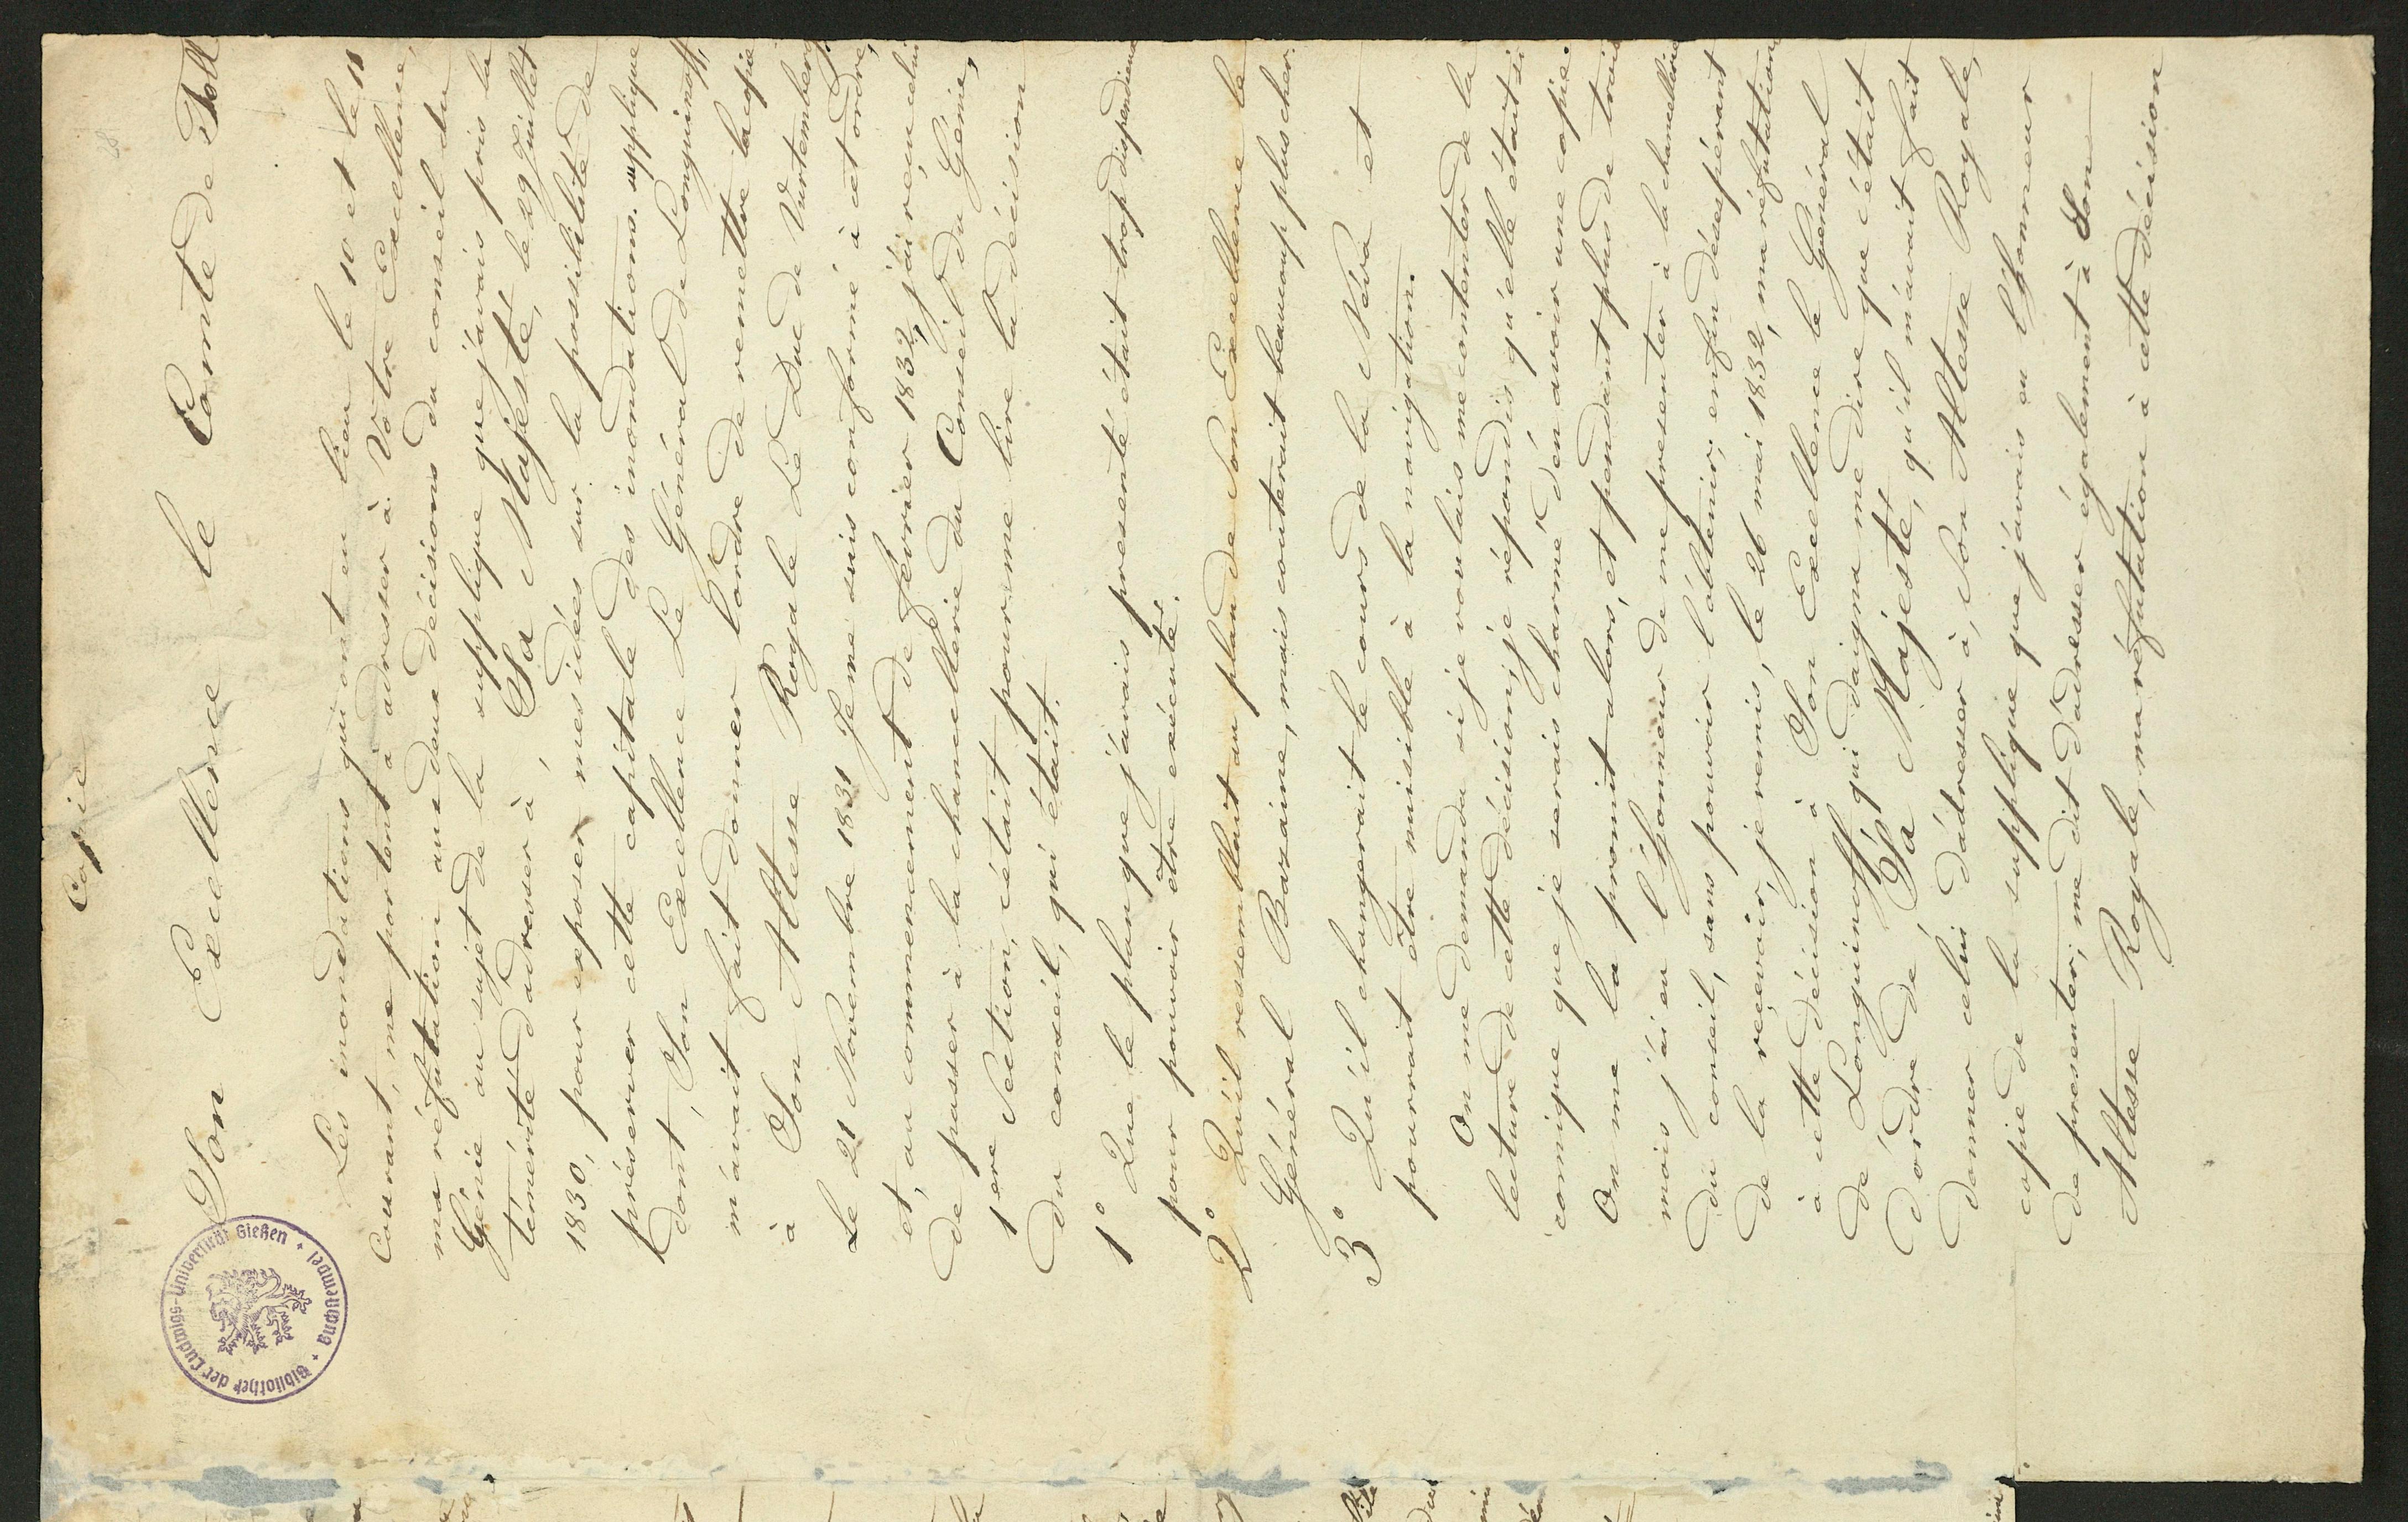 Copie
Son Excellence le Comte de Toll
Les inondations qui ont eu lieu le 10 et le 11
Courant, me portent à adresser à Votre Excellence,
ma réfutation aux deux décisions du conseil du
Génie au sujet de la supplique que j'avais pris la
témérité d'adresser à Sa Majesté, le 29 Juillet
1830, pour exposer mes idées sur la possibilité de
préserver cette capitale des inondations. supplique
dont, Son Excellence Le Général de Longuinoff,
m'avait fait donner l'ordre de remettre la copie
à Son Altesse Royale Le Duc de Vurtemberg
Le 21 Novembre 1831 Je me suis conformé à cet ordre,
et, au commencement de février 1832, j'ai reçu celui
de passer à la chancellerie du Conseil du Génie,
1ere Section, c'était pour me lire la décision
du conseil, qui était.
1° Que le plan que j'avais presenté était trop dispendieux
pour pouvoir être exécuté.
2° Qu'il ressemblait au plan de Son Excellence le
Général Bazaine, mais couterait beaucoup plus cher.
3° Qu'il changerait le cours de la Néva et
pourrait être nuisible à la navigation.
On me demanda si je voulais me contenter de la
lecture de cette décision, je répondis qu'elle était si
comique que je serais charmé d'en avoir une copie.
On me la promit alors, et pendant plus de trois
mois j'ai eu l'honneur de me presenter à la chancellerie
du conseil, sans pouvoir l'obtenir; enfin désespérant
de la reçevoir, je remis, le 26 mai 1832, ma réfutation
à cette décision à Son Excellence le Général
de Longuinoff qui daigna me dire que c'était
d'ordre de Sa Majesté, qu'il m'avait fait
donner celui d'adresser à Son Altesse Royale,
copie de la supplique que j'avais eu l'honneur
de presenter; me dit d'adresser également à Son
Altesse Royale, ma réfutation à cette décision
Bibliothek der Ludwigs-Universität Gießen + Buchnamei +